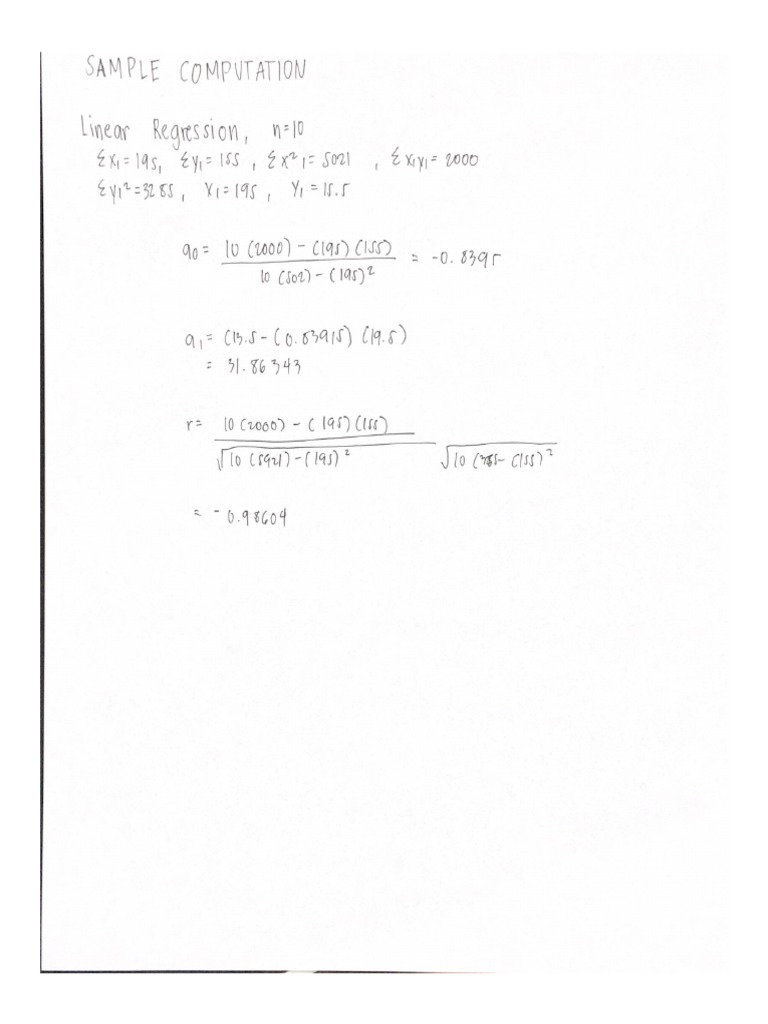 SAMPLE COMPUTATION
Linear Regression, n=10
Σx₁=195, Σy₁=155, Σx²₁=5021, Σx₁y₁=2000
Σy₁²=3285, X₁=195, Y₁=15.5
a₀= 10(2000)-(195)(155) / 10(502)-(195)² = -0.8395
a₁= (13.5-(0.83915)(19.5)
= 31.86343
r= 10(2000)-(195)(155) / √10(5921)-(195)² √10(-(155)²
= -0.98604